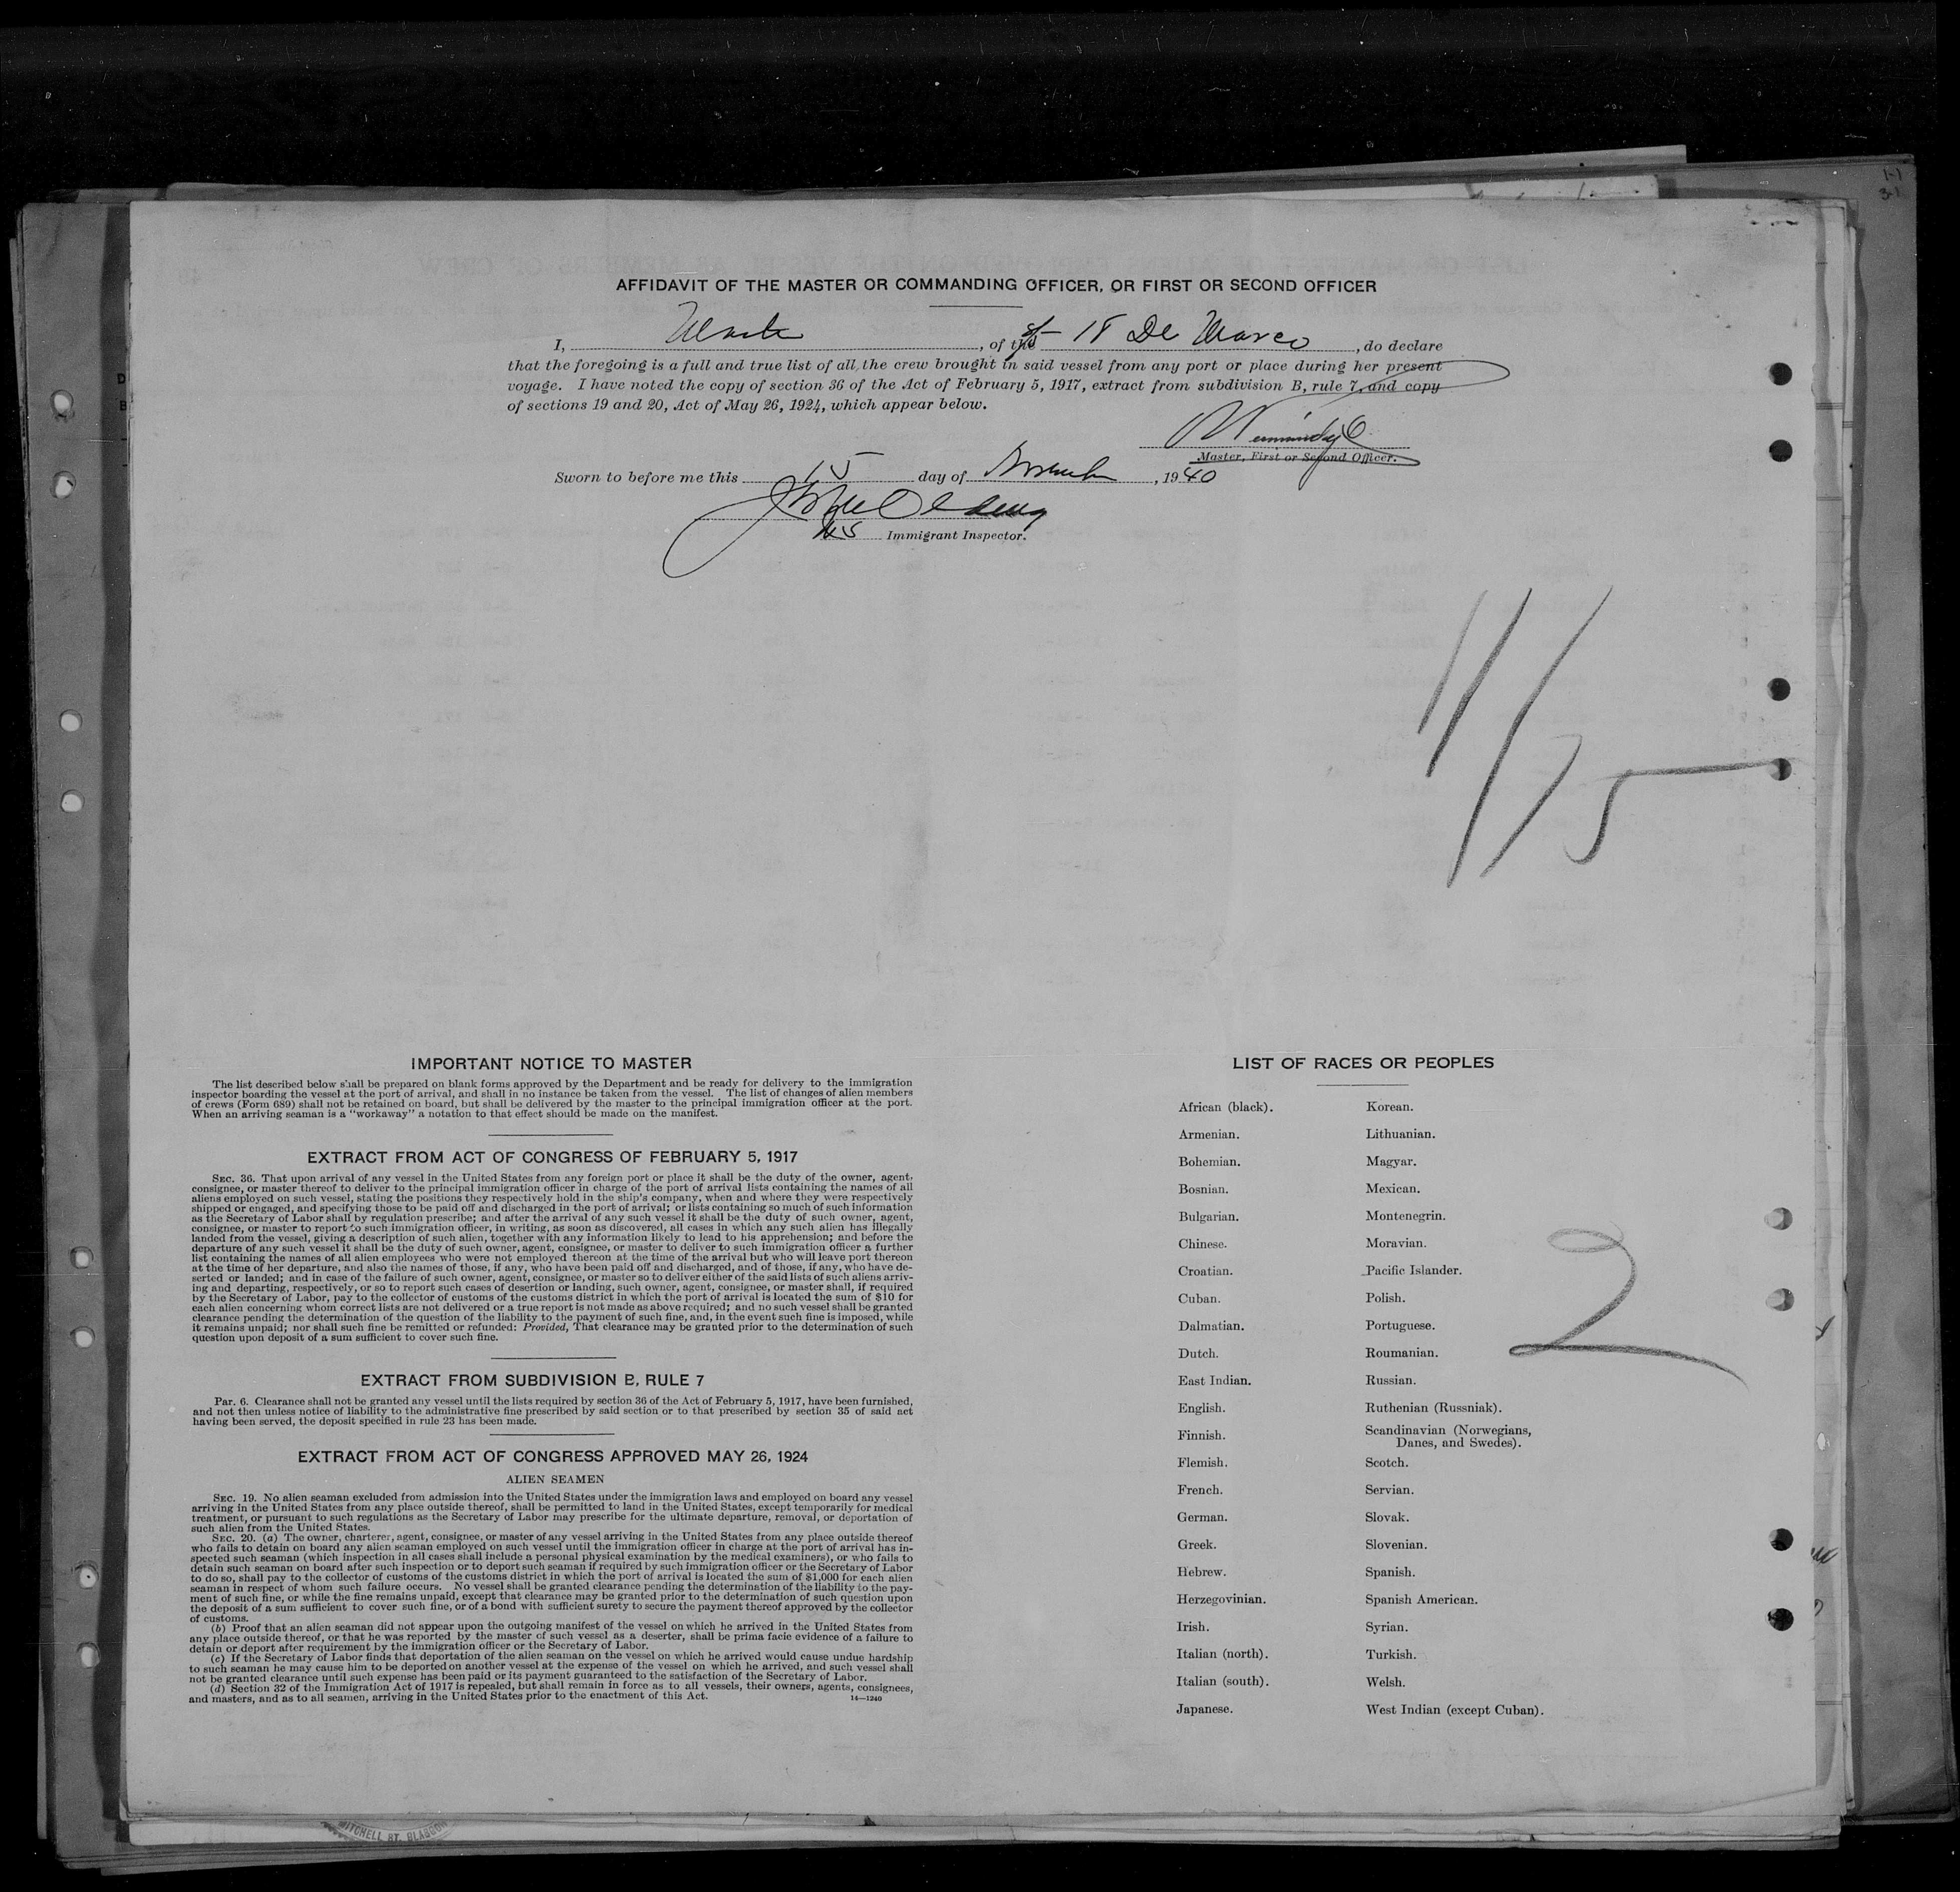 AFFIDAVIT OF THE MASTER OR COMMANDING OFFICER, OR FIRST OR SECOND OFFICER
I, Master, of the 18 De Marco, do declare
that the foregoing is a full and true list of all the crew brought in said vessel from any port or place during her present
voyage. I have noted the copy of section 36 of the Act of February 5, 1917, extract from subdivision B, rule 7, and copy
of sections 19 and 20, Act of May 26, 1924, which appear below.
Master, First or Second Officer.
Sworn to before me this 15 day of November, 1940
Immigrant Inspector.
11/15
IMPORTANT NOTICE TO MASTER
The list described below shall be prepared on blank forms approved by the Department and be ready for delivery to the immigration
inspector boarding the vessel at the port of arrival, and shall in no instance be taken from the vessel. The list of changes of alien members
of crews (Form 689) shall not be retained on board, but shall be delivered by the master to the principal immigration officer at the port.
When an arriving seaman is a "workaway" a notation to that effect should be made on the manifest.
EXTRACT FROM ACT OF CONGRESS OF FEBRUARY 5, 1917
SEC. 36. That upon arrival of any vessel in the United States from any foreign port or place it shall be the duty of the owner, agent,
consignee, or master thereof to deliver to the principal immigration officer in charge of the port of arrival lists containing the names of all
aliens employed on such vessel, stating the positions they respectively hold in the ship's company, when and where they were respectively
shipped or engaged, and specifying those to be paid off and discharged in the port of arrival; or lists containing so much of such information
as the Secretary of Labor shall by regulation prescribe; and after the arrival of any such vessel it shall be the duty of such owner, agent,
consignee, or master to report to such immigration officer, in writing, as soon as discovered, all cases in which any such alien has illegally
landed from the vessel, giving a description of such alien, together with any information likely to lead to his apprehension; and before the
departure of any such vessel it shall be the duty of such owner, agent, consignee, or master to deliver to such immigration officer a further
list containing the names of all alien employees who were not employed thereon at the time of the arrival but who will leave port thereon
at the time of her departure, and also the names of those, if any, who have been paid off and discharged, and of those, if any, who have de-
serted or landed; and in case of the failure of such owner, agent, consignee, or master so to deliver either of the said lists of such aliens arriv-
ing and departing, respectively, or so to report such cases of desertion or landing, such owner, agent, consignee, or master shall, if required
by the Secretary of Labor, pay to the collector of customs of the customs district in which the port of arrival is located the sum of $10 for
each alien concerning whom correct lists are not delivered or a true report is not made as above required; and no such vessel shall be granted
clearance pending the determination of the question of the liability to the payment of such fine, and, in the event such fine is imposed, while
it remains unpaid; nor shall such fine be remitted or refunded: Provided, That clearance may be granted prior to the determination of such
question upon deposit of a sum sufficient to cover such fine.
EXTRACT FROM SUBDIVISION B, RULE 7
Par. 6. Clearance shall not be granted any vessel until the lists required by section 36 of the Act of February 5, 1917, have been furnished,
and not then unless notice of liability to the administrative fine prescribed by said section or to that prescribed by section 35 of said act
having been served, the deposit specified in rule 23 has been made.
EXTRACT FROM ACT OF CONGRESS APPROVED MAY 26, 1924
ALIEN SEAMEN
SEC. 19. No alien seaman excluded from admission into the United States under the immigration laws and employed on board any vessel
arriving in the United States from any place outside thereof, shall be permitted to land in the United States, except temporarily for medical
treatment, or pursuant to such regulations as the Secretary of Labor may prescribe for the ultimate departure, removal, or deportation of
such alien from the United States.
SEC. 20. (a) The owner, charterer, agent, consignee, or master of any vessel arriving in the United States from any place outside thereof
who fails to detain on board any alien seaman employed on such vessel until the immigration officer in charge at the port of arrival has in-
spected such seaman (which inspection in all cases shall include a personal physical examination by the medical examiners), or who fails to
detain such seaman on board after such inspection or to deport such seaman if required by such immigration officer or the Secretary of Labor
to do so, shall pay to the collector of customs of the customs district in which the port of arrival is located the sum of $1,000 for each alien
seaman in respect of whom such failure occurs. No vessel shall be granted clearance pending the determination of the liability to the pay-
ment of such fine, or while the fine remains unpaid, except that clearance may be granted prior to the determination of such question upon
the deposit of a sum sufficient to cover such fine, or of a bond with sufficient surety to secure the payment thereof approved by the collector
of customs.
(b) Proof that an alien seaman did not appear upon the outgoing manifest of the vessel on which he arrived in the United States from
any place outside thereof, or that he was reported by the master of such vessel as a deserter, shall be prima facie evidence of a failure to
detain or deport after requirement by the immigration officer or the Secretary of Labor.
(c) If the Secretary of Labor finds that deportation of the alien seaman on the vessel on which he arrived would cause undue hardship
to such seaman he may cause him to be deported on another vessel at the expense of the vessel on which he arrived, and such vessel shall
not be granted clearance until such expense has been paid or its payment guaranteed to the satisfaction of the Secretary of Labor.
(d) Section 32 of the Immigration Act of 1917 is repealed, but shall remain in force as to all vessels, their owners, agents, consignees,
and masters, and as to all seamen, arriving in the United States prior to the enactment of this Act.
14—1240
LIST OF RACES OR PEOPLES
African (black).
Armenian.
Bohemian.
Bosnian.
Bulgarian.
Chinese.
Croatian.
Cuban.
Dalmatian.
Dutch.
East Indian.
English.
Finnish.
Flemish.
French.
German.
Greek.
Hebrew.
Herzegovinian.
Irish.
Italian (north).
Italian (south).
Japanese.
Korean.
Lithuanian.
Magyar.
Mexican.
Montenegrin.
Moravian.
Pacific Islander.
Polish.
Portuguese.
Roumanian.
Russian.
Ruthenian (Russniak).
Scandinavian (Norwegians,
Danes, and Swedes).
Scotch.
Servian.
Slovak.
Slovenian.
Spanish.
Spanish American.
Syrian.
Turkish.
Welsh.
West Indian (except Cuban).
2